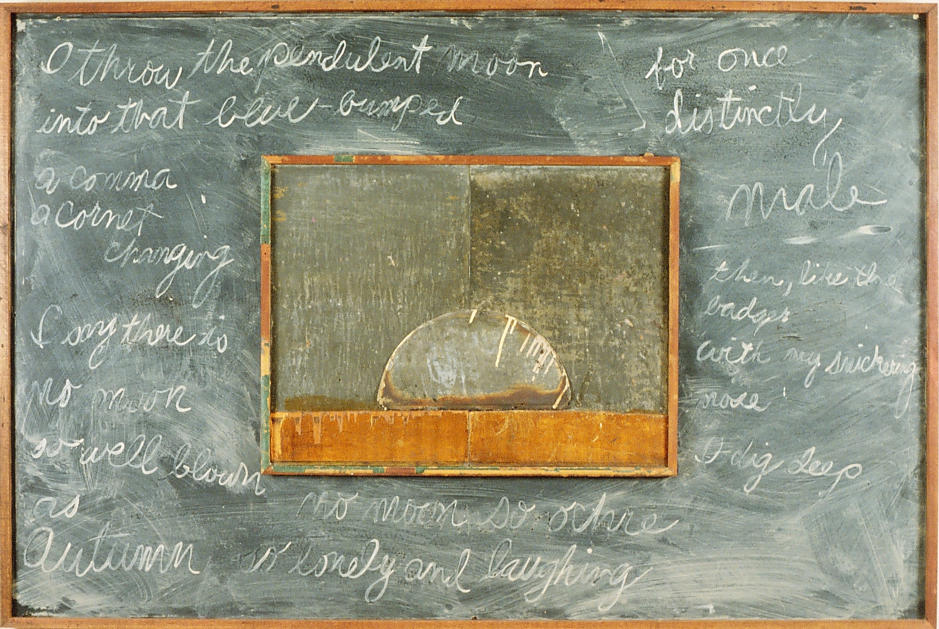 I throw the pendulent moon
into that blue-bumped
a comma
a cornet
changing
I say there is
no moon
so well blown
as
Autumn
no moon so ochre
so lonely and laughing
for once
distinctly
male
then, like the
badger
with my snickering
nose
I dig deep